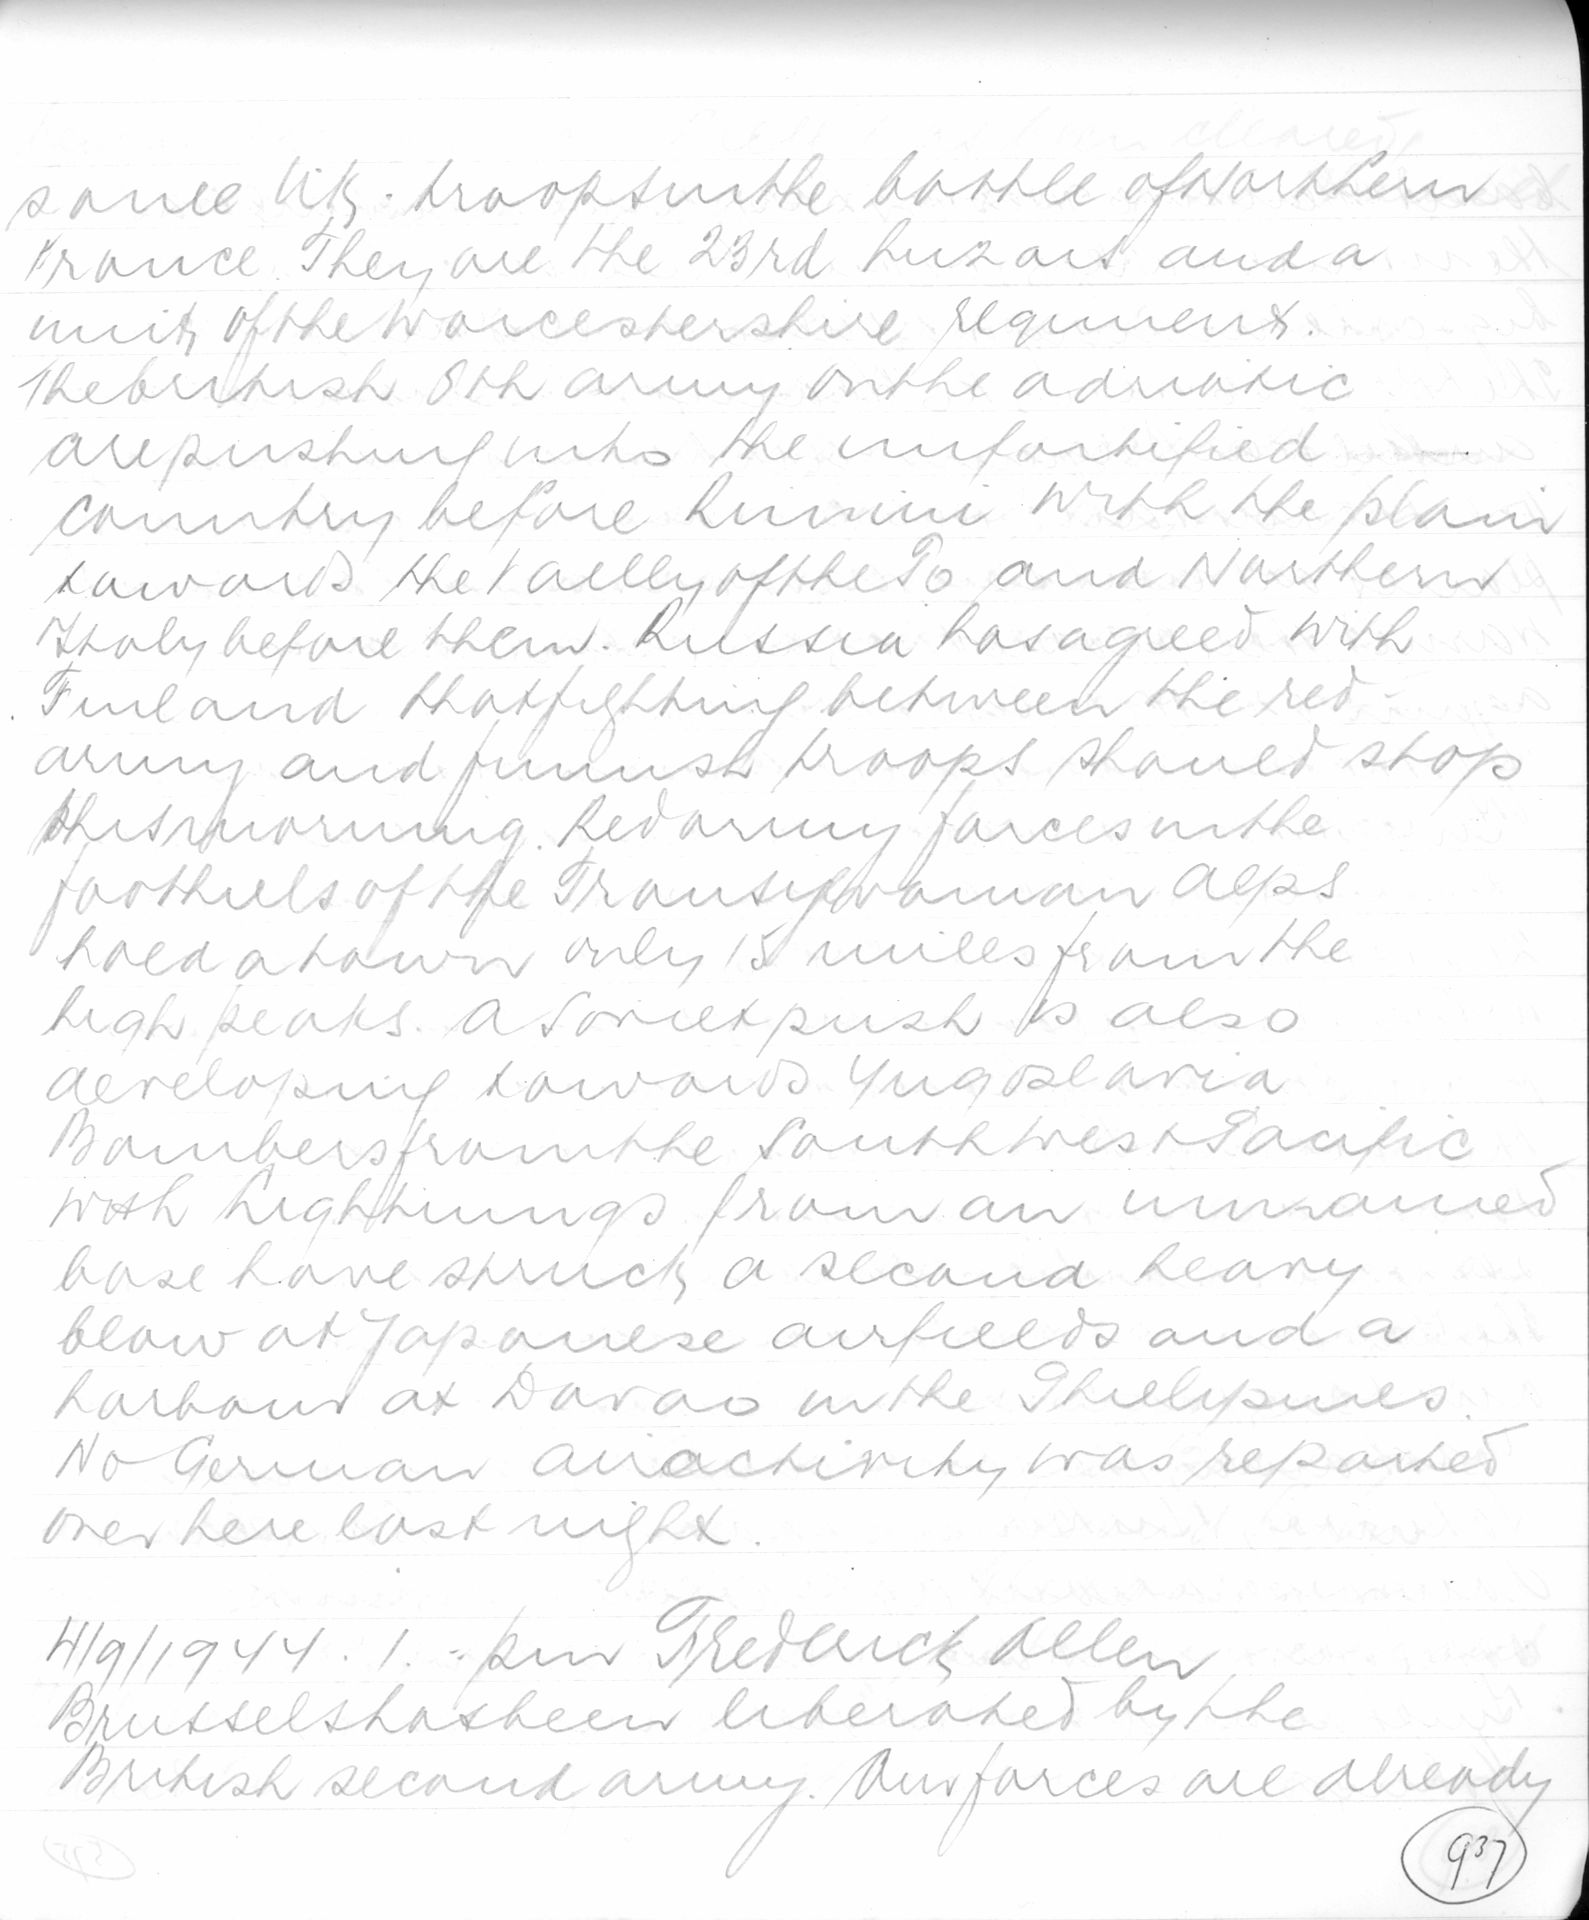 some U.K. troops in the battle of Northern
France. They are the 23rd huzars and a
unit of the Worcestershire regiment.
The british 8th army on the adriatic
are pushing into the unfortified
country before Rimini with the plain
towards the Vallly of the Po and Northern
Italy before them. Russia has agreed with
Finland that fighting between the red
army and finnish troops should stop
this morning. Red army forces in the
foothills of the Transylvanian Alps
hold a town only 15 miles from the
high peaks. A Soviet push is also
developing towards Yugoslavia
Bombers from the South West Pacific
with Lightnings from an unnamed
base have struck a second heavy
blow at Japanese airfields and a
harbour at Davao in the Phillipines.
No German air activity was reported
over here last night.
4/9/1944. 1. - pm Frederick Allen
Brussels has been liberated by the
British second army. Our forces are already
937